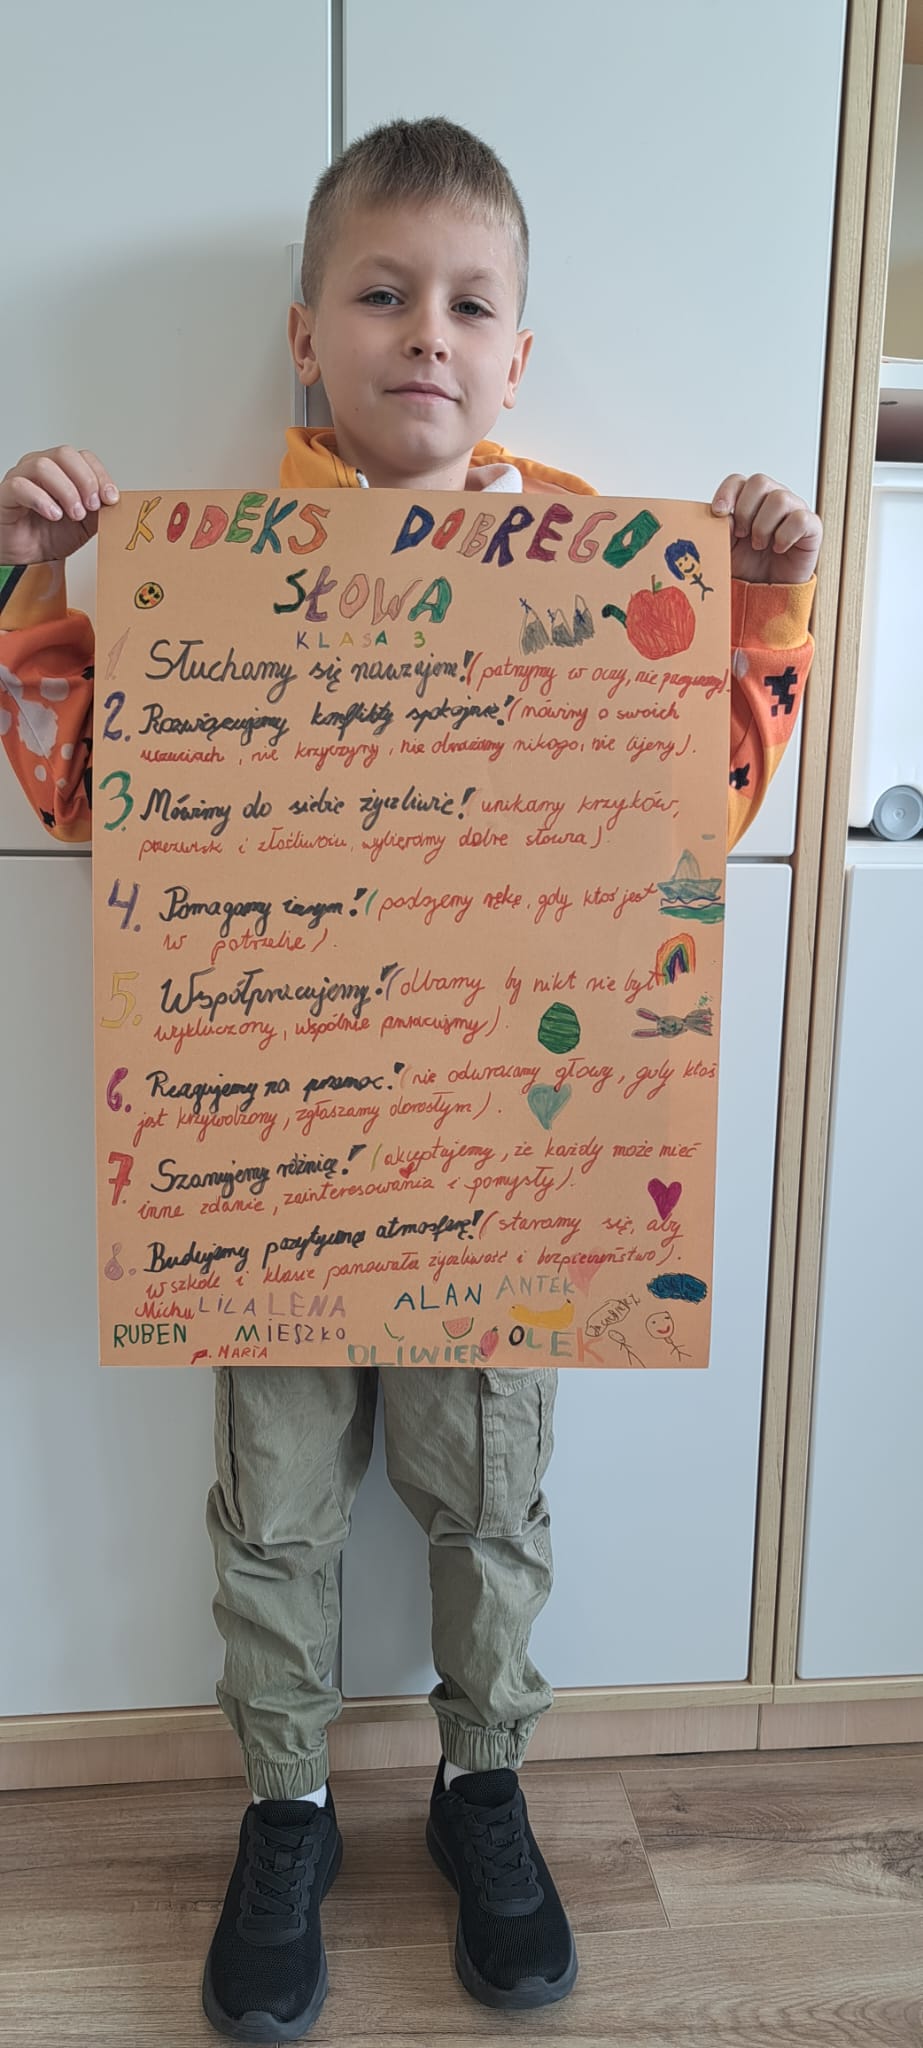 KODEKS DOBREGO
SŁOWA
KLASA 3
1. Słuchamy się nawzajem! (patrzymy w oczy, nie
2. Rozwiązujemy konflikty spokojnie! (mówimy o swoich
uczuciach, nie krzyczymy, nie obrażamy nikogo, nie bijemy).
3. Mówimy do siebie życzliwie! (unikamy krzyków,
przezwisk i złośliwości, wybieramy dobre słowa).
4. Pomagamy innym! (podajemy rękę, gdy ktoś jest
w potrzebie).
5. Współpracujemy! (dbamy by nikt nie był
wykluczony, wspólnie pracujemy).
6. Reagujemy na przemoc! (nie odwracamy głowy, gdy ktoś
jest krzywdzony, zgłaszamy dorosłym).
7 Szanujemy różnice! (akceptujemy, że każdy może mieć
inne zdanie, zainteresowania i pomysły).
8. Budujemy pozytywną atmosferę! (staramy się, aby
w szkole i klasie panowała życzliwość i bezpieczeństwo).
Michu LILA LENA ALAN ANTEK
RUBEN MIESZKO OLIWIER OLEK
p. MARIA